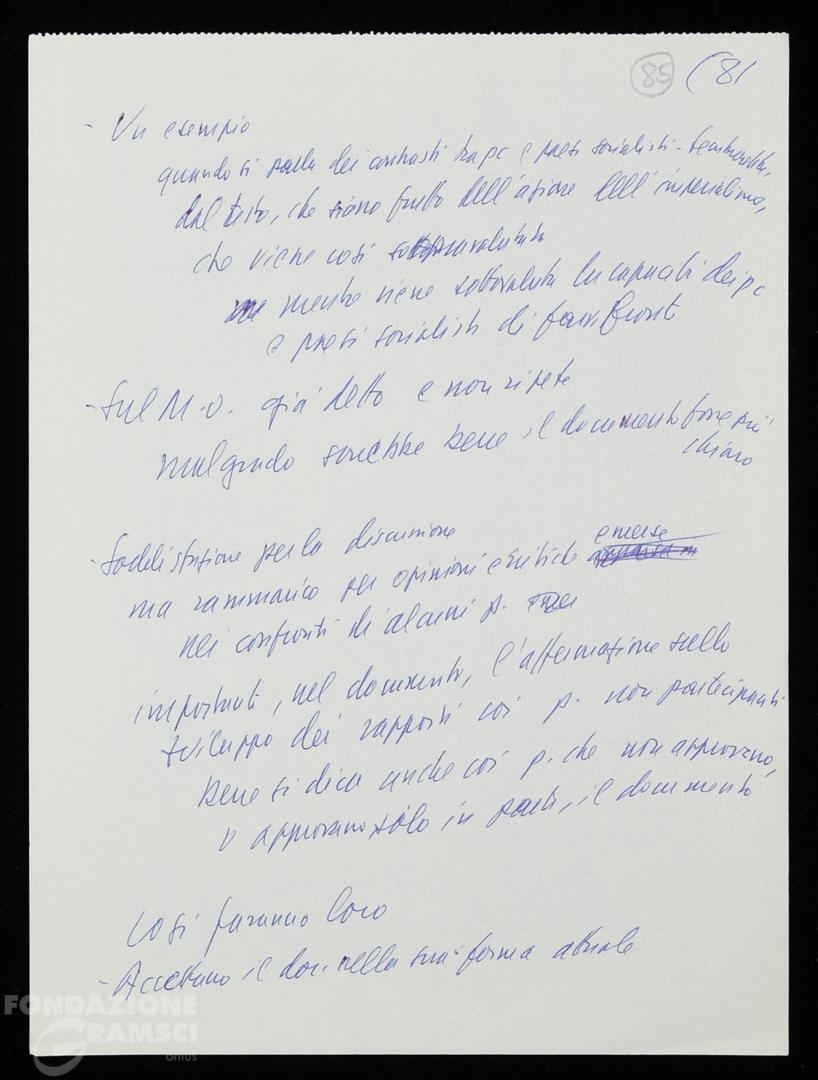 85 (81
- Un esempio
quando si parla dei contrasti tra pc e paesi socialisti - sembrerebbe,
dal testo, che siano frutto dell'azione dell'imperialismo,
che viene così sopravalutata
mentre viene sottovalutata la capacità dei pc
e paesi socialisti di farvi fronte
- Sul M.O. già detto e non ripete
malgrado sarebbe bene il documento fosse più
chiaro
- Soddisfazione per la discussione
ma rammarico per opinioni critiche emerse
nei confronti di alcuni p.
importanti, nel documento, l'affermazione sullo
sviluppo dei rapporti coi p. non partecipanti
bene si dica anche coi p. che non approvano,
o approvano solo in parte, il documento
Così faranno loro
- Accettano il doc. nella sua forma attuale
FONDAZIONE
GRAMSCI
onlus